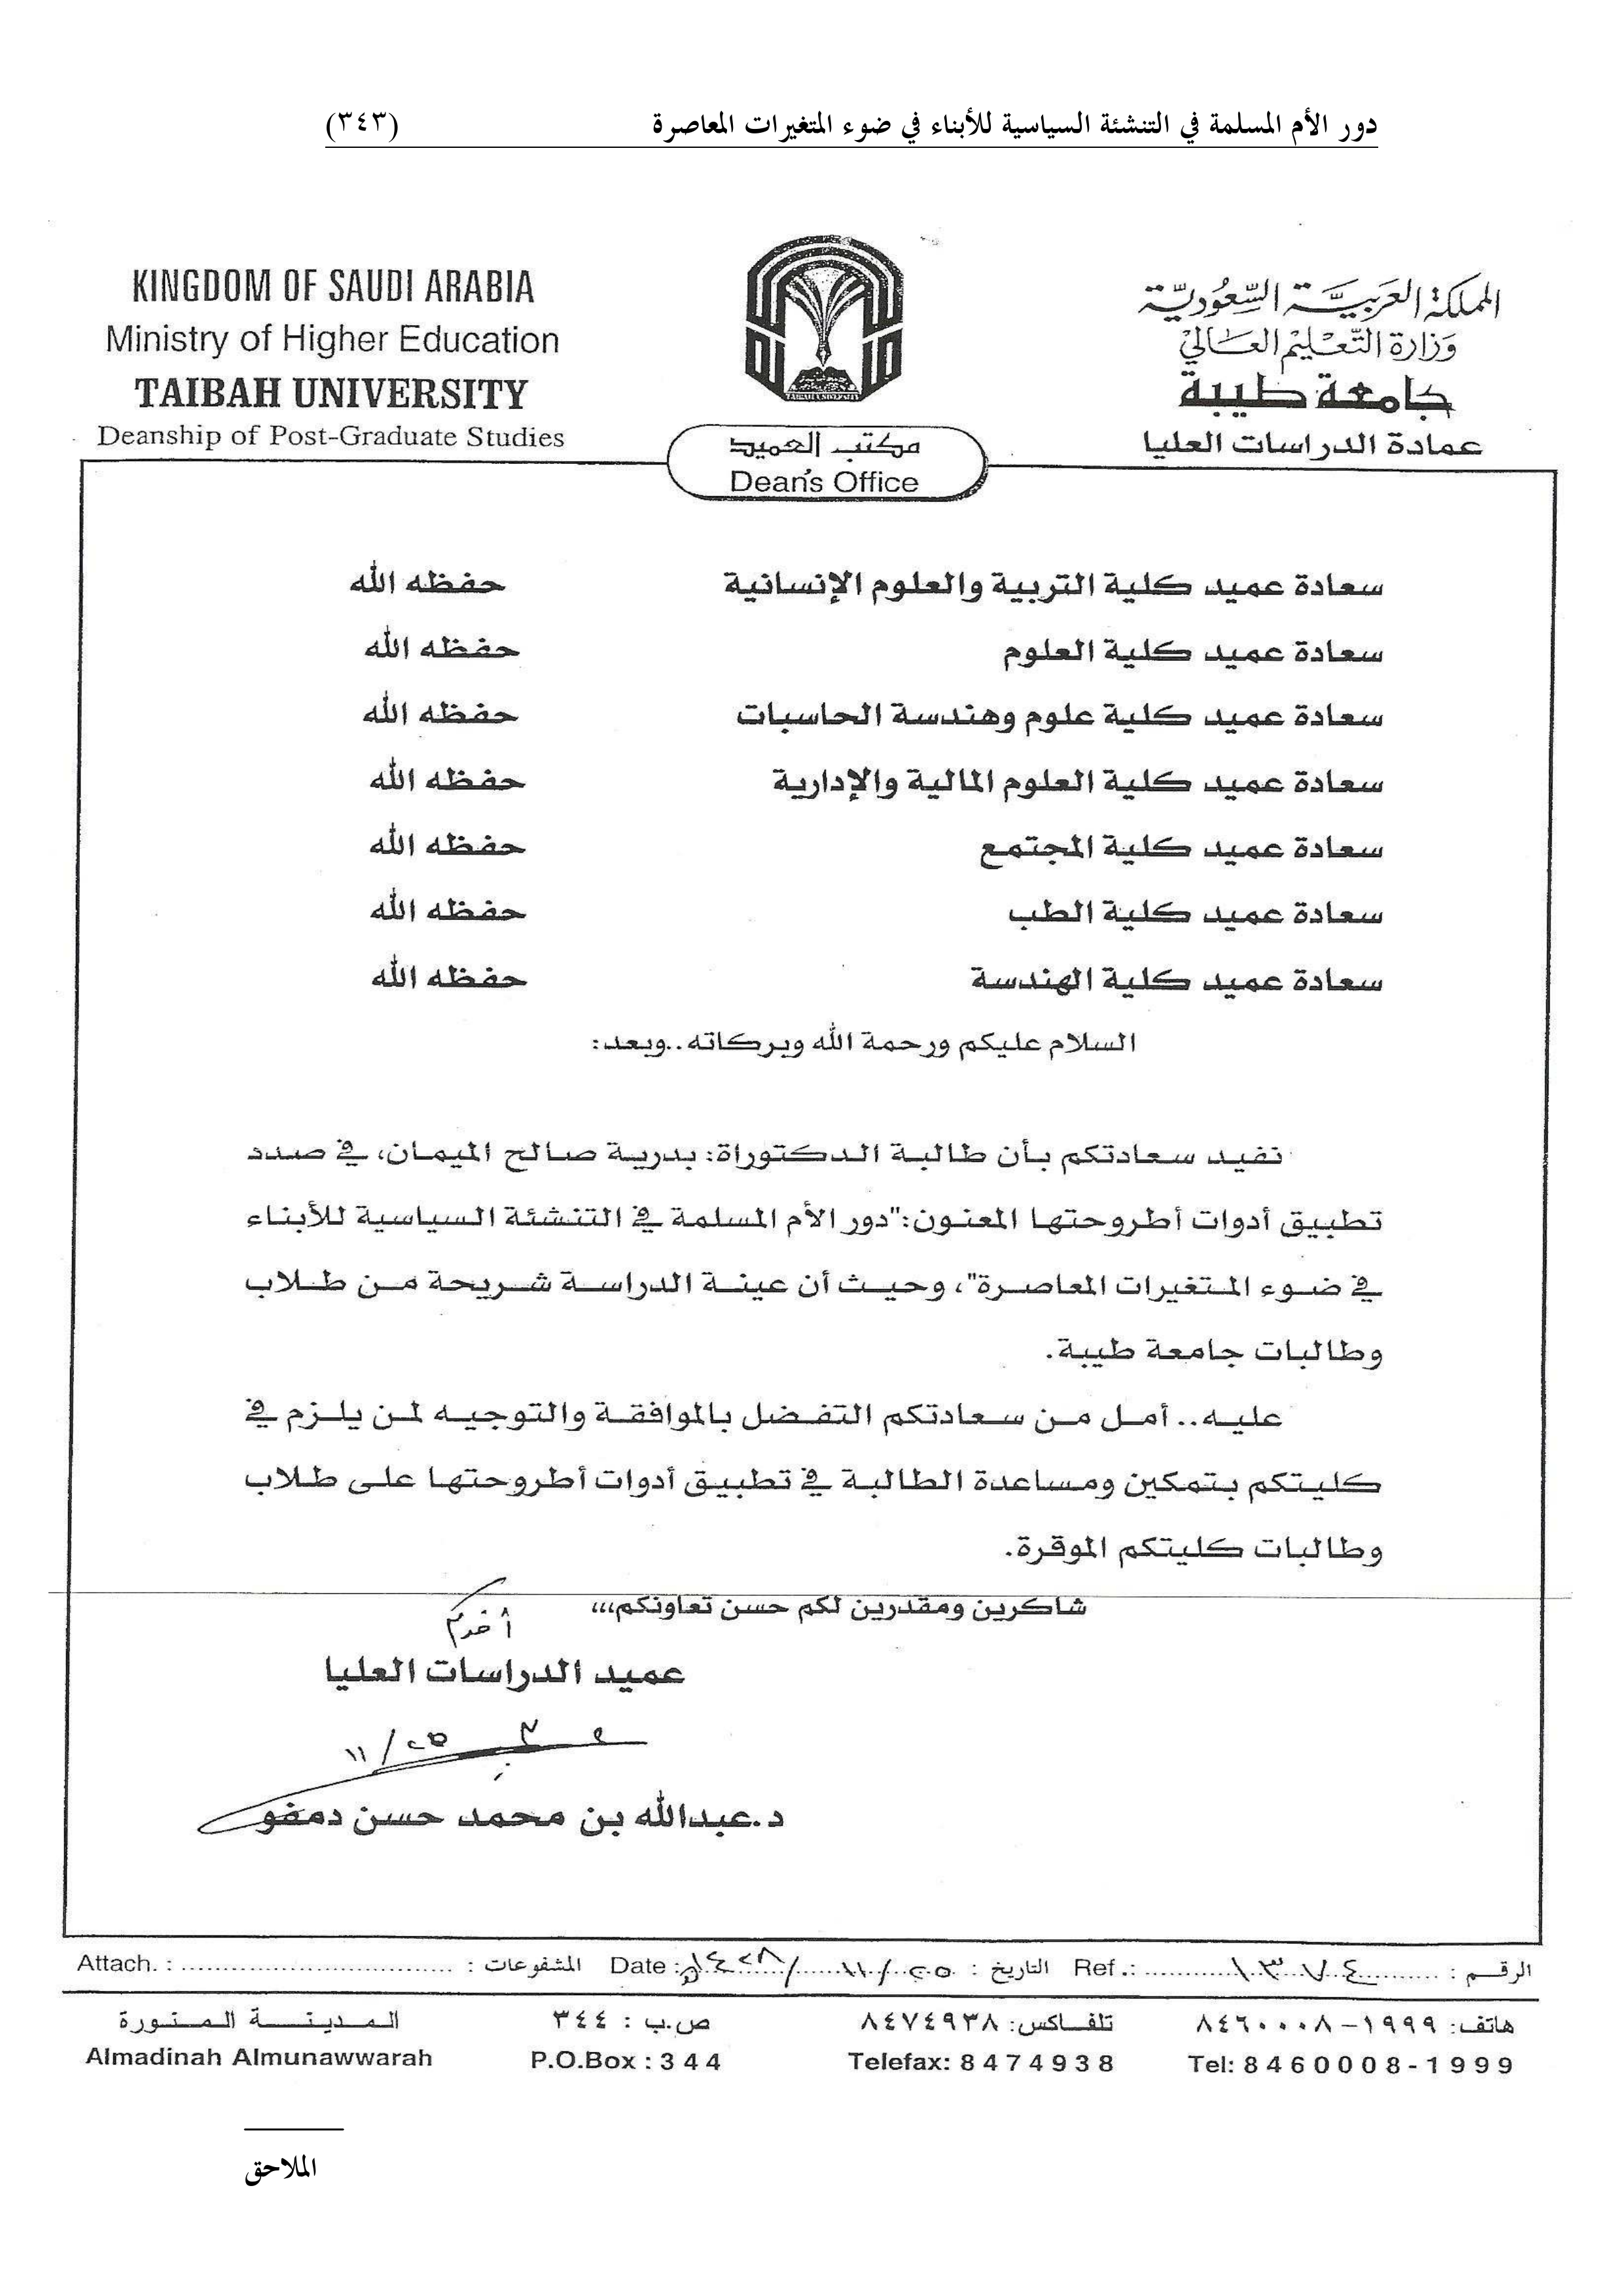 دور الأم المسلمة في التنشئة السياسية للأبناء في ضوء المتغيرات المعاصرة (٣٤٣)
KINGDOM OF SAUDI ARABIA
Ministry of Higher Education
TAIBAH UNIVERSITY
Deanship of Post-Graduate Studies
TAIBAH UNIVERSITY
المملكة العربية السعودية
وزارة التعليم العالي
جامعة طيبة
عمادة الدراسات العليا
مكتب العميد
Dean's Office
سعادة عميد كلية التربية والعلوم الإنسانية حفظه الله
سعادة عميد كلية العلوم حفظه الله
سعادة عميد كلية علوم وهندسة الحاسبات حفظه الله
سعادة عميد كلية العلوم المالية والإدارية حفظه الله
سعادة عميد كلية المجتمع حفظه الله
سعادة عميد كلية الطب حفظه الله
سعادة عميد كلية الهندسة حفظه الله
السلام عليكم ورحمة الله وبركاته..وبعد:
نفيد سعادتكم بأن طالبة الدكتوراة: بدرية صالح الميمان، في صدد
تطبيق أدوات أطروحتها المعنون:"دور الأم المسلمة في التنشئة السياسية للأبناء
في ضوء المتغيرات المعاصرة"، وحيث أن عينة الدراسة شريحة من طلاب
وطالبات جامعة طيبة.
عليه.. أمل من سعادتكم التفضل بالموافقة والتوجيه لمن يلزم في
كليتكم بتمكين ومساعدة الطالبة في تطبيق أدوات أطروحتها على طلاب
وطالبات كليتكم الموقرة.
شاكرين ومقدرين لكم حسن تعاونكم،،،
عميد الدراسات العليا
١١/٢٥
د.عبدالله بن محمد حسن دمفو
الرقم : ١٣٧٤ Ref.: التاريخ : ٢٥/١١/١٤٢٨هـ Date : المشفوعات : Attach. :
هاتف: ١٩٩٩-٨٤٦٠٠٠٨ تلفاكس: ٨٤٧٤٩٣٨ ص.ب : ٣٤٤ المدينة المنورة
Almadinah Almunawwarah P.O.Box : 344 Telefax: 8474938 Tel: 8460008-1999
الملاحق